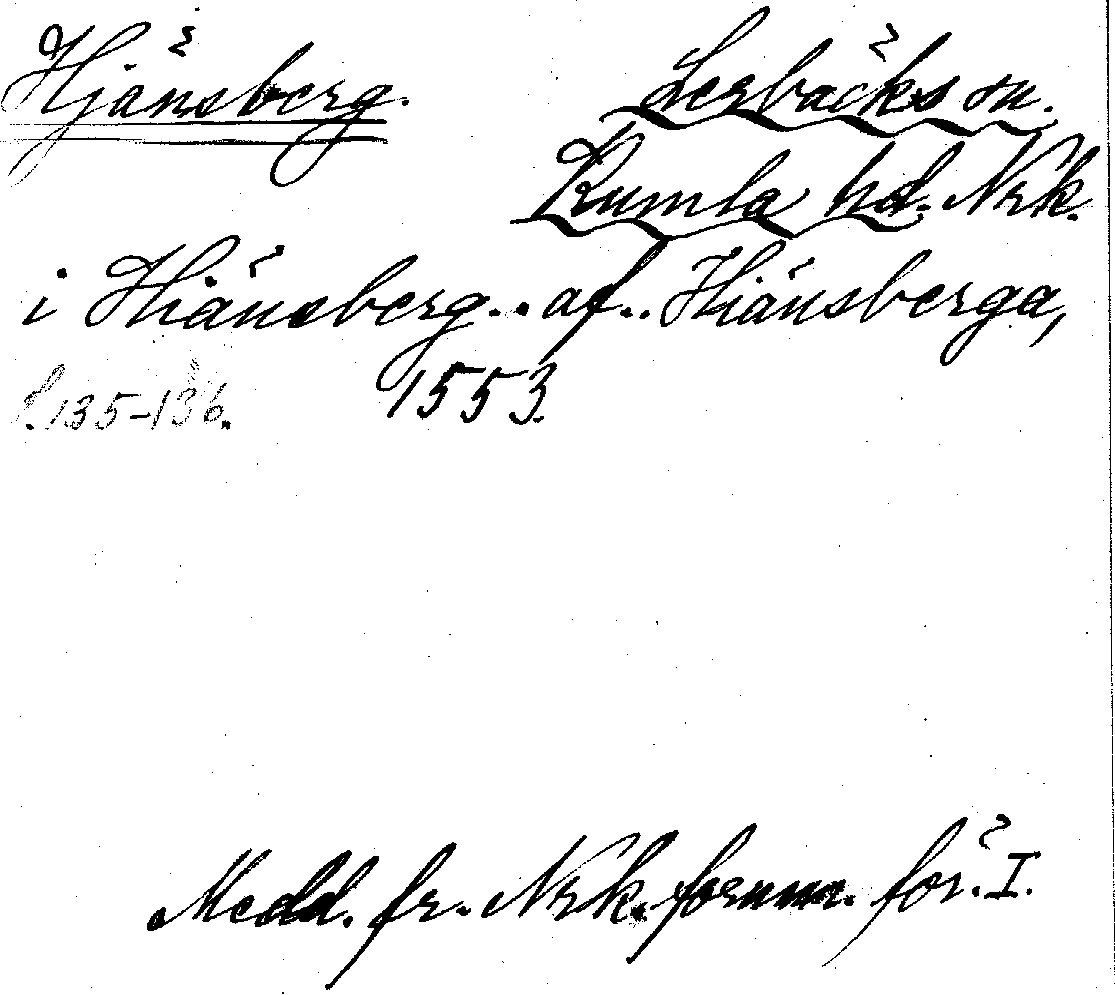 Hjänsberg.
Lerbäcks sn.
Kumla hd. Nrk.
i Hiänsberg... af.. Hiänsberga,
1553.
s. 135-136.
Medd. fr. Nrk. fornm. för. I.